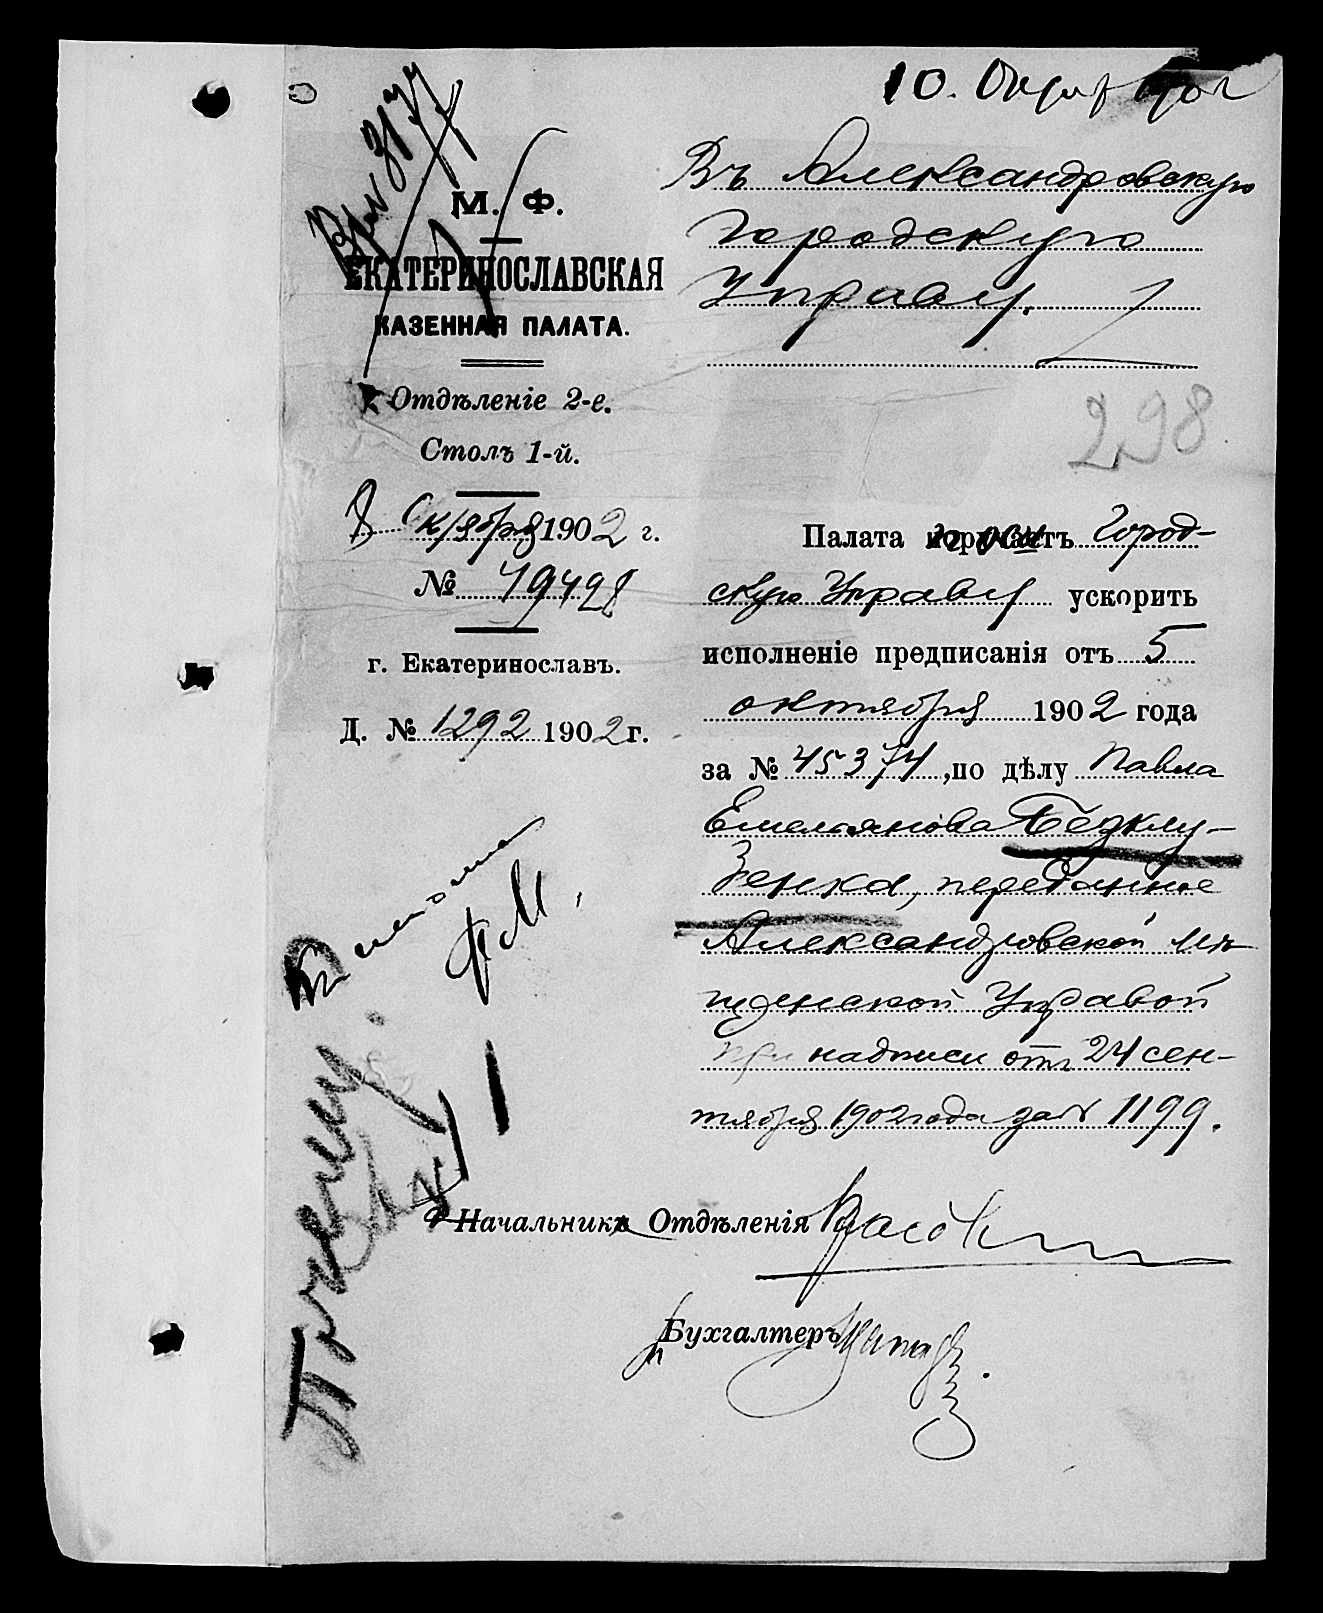 10. Октяб 1902
Въ Александровскую
Городскую
Управу.
М. Ф.
ЕКАТЕРИНОСЛАВСКАЯ
КАЗЕННАЯ ПАЛАТА.
Отдѣленіе 2-е.
Столъ 1-й.
8 Октября 1902 г.
№
г. Екатеринославъ.
Д. № 1292 1902 г.
298
Палата Город-
скую Управу ускорить
исполненіе предписанія отъ 5
октября 1902 года
за № 45374, по дѣлу Павла
Емельянова Безклу-
Зенка, переданное
Александровской мѣ-
щанской Управой
при надписи отъ 24 сен-
тября 1902 года за № 1199.
Начальника Отдѣленія
Бухгалтеръ